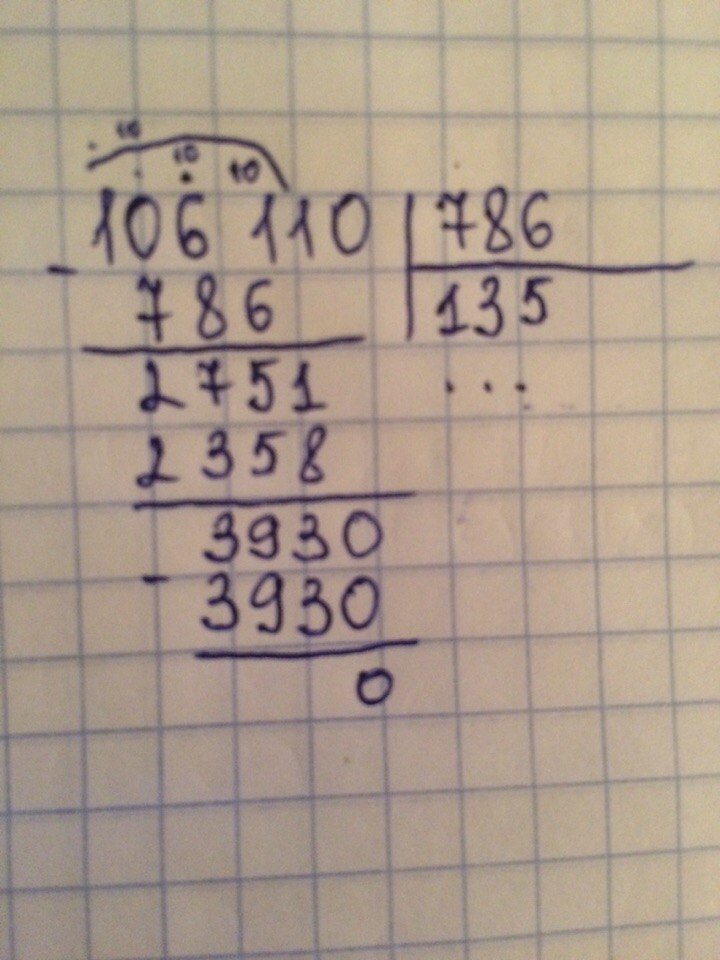 10
10 10
106 110 | 786
- 786 | 135
2751 ...
2358
3930
- 3930
0